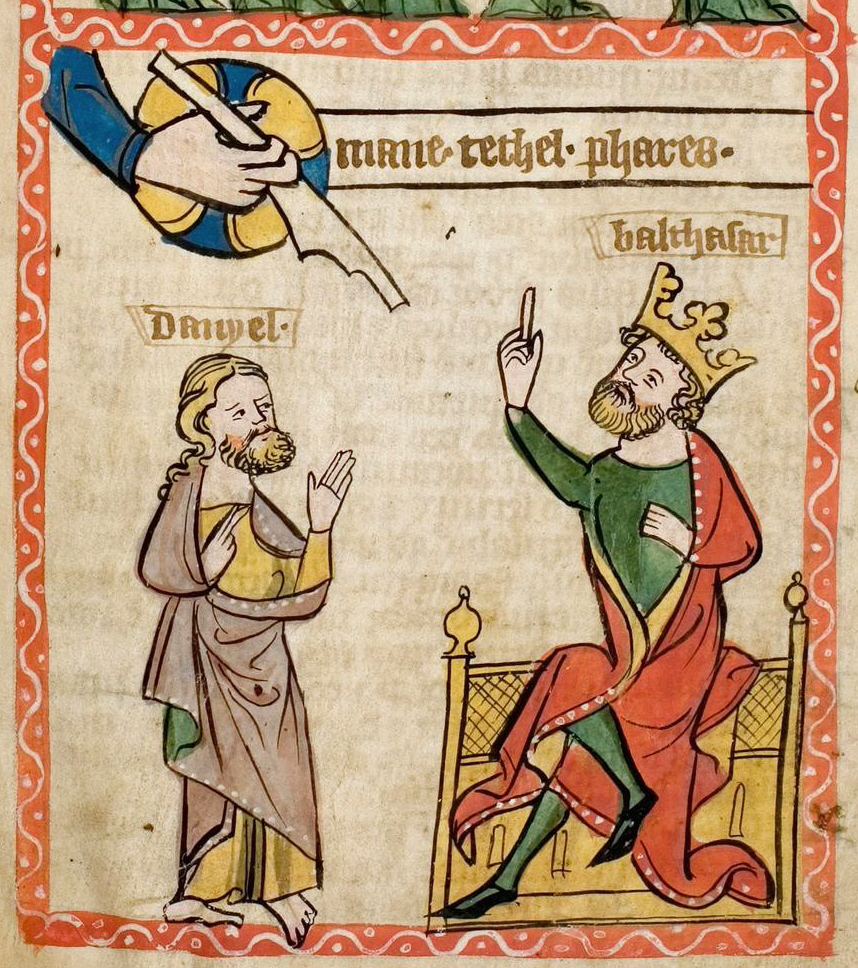 mane· techel· phares·
balthasar
Danyel·